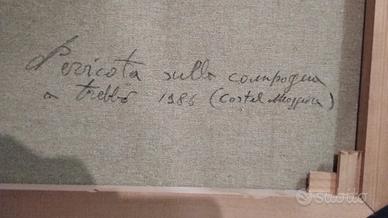 Nevicata sulla campagna
a trebbo 1986 (Castel Maggiore)
subito